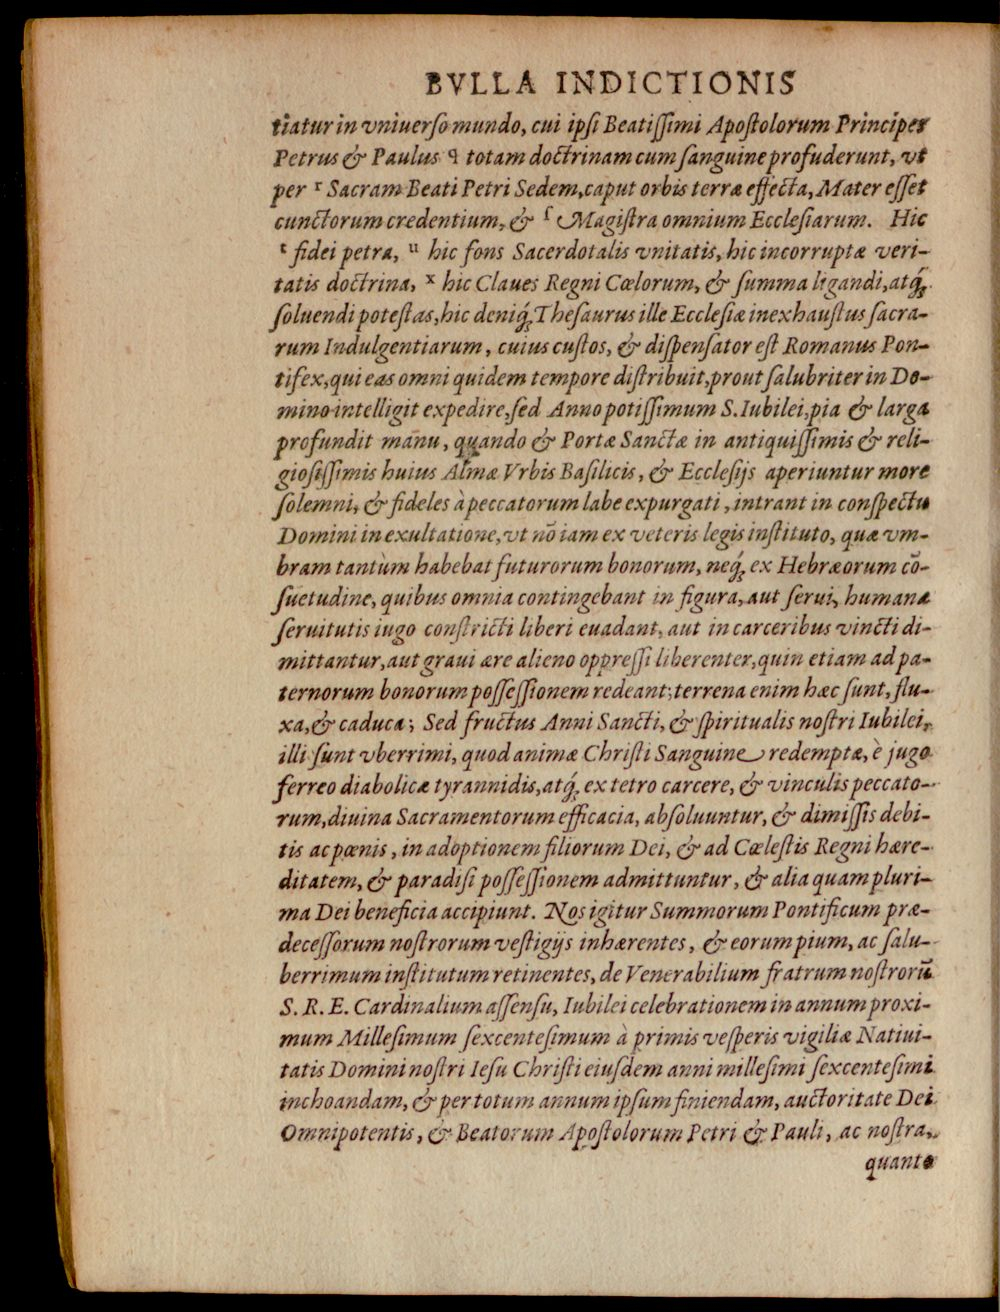 BVLLA INDICTIONIS
tiatur in vniuerſo mundo, cui ipſi Beatiſſimi Apoſtolorum Principes
Petrus & Paulus q totam doctrinam cum ſanguine profuderunt, vt
per r Sacram Beati Petri Sedem, caput orbis terræ effecta, Mater eſſet
cunctorum credentium, & ſ Magiſtra omnium Eccleſiarum. Hic
t fidei petra, u hic fons Sacerdotalis vnitatis, hic incorruptæ veri-
tatis doctrina, x hic Claues Regni Cœlorum, & ſumma ligandi, atq́;
ſoluendi poteſtas, hic deniq́; Theſaurus ille Eccleſiæ inexhauſtus ſacra-
rum Indulgentiarum, cuius cuſtos, & diſpenſator eſt Romanus Pon-
tifex, qui eas omni quidem tempore diſtribuit, prout ſalubriter in Do-
mino intelligit expedire, ſed Anno potiſſimum S. Iubilei, pia & larga
profundit manu, quando & Portæ Sanctæ in antiquiſſimis & reli-
gioſiſſimis huius Almæ Vrbis Baſilicis, & Eccleſijs aperiuntur more
ſolemni, & fideles à peccatorum labe expurgati, intrant in conſpectu
Domini in exultatione, vt nō iam ex veteris legis inſtituto, quæ vm-
bram tantùm habebat futurorum bonorum, neq́; ex Hebræorum cō-
ſuetudine, quibus omnia contingebant in figura, aut ſerui, humanæ
ſeruitutis iugo conſtricti liberi euadant, aut in carceribus vincti di-
mittantur, aut graui ære alieno oppreſſi liberenter, quin etiam ad pa-
ternorum bonorum poſſeſſionem redeant; terrena enim hæc ſunt, flu-
xa, & caduca; Sed fructus Anni Sancti, & ſpiritualis noſtri Iubilei,
illi ſunt vberrimi, quod animæ Chriſti Sanguine redemptæ, è jugo
ferreo diabolicæ tyrannidis, atq́; ex tetro carcere, & vinculis peccato-
rum, diuina Sacramentorum efficacia, abſoluuntur, & dimiſſis debi-
tis ac pœnis, in adoptionem filiorum Dei, & ad Cœleſtis Regni hære-
ditatem, & paradiſi poſſeſſionem admittuntur, & alia quam pluri-
ma Dei beneficia accipiunt. Nos igitur Summorum Pontificum præ-
deceſſorum noſtrorum veſtigijs inhærentes, & eorum pium, ac ſalu-
berrimum inſtitutum retinentes, de Venerabilium fratrum noſtrorū
S. R. E. Cardinalium aſſenſu, Iubilei celebrationem in annum proxi-
mum Milleſimum ſexcenteſimum à primis veſperis vigiliæ Natiui-
tatis Domini noſtri Ieſu Chriſti eiuſdem anni milleſimi ſexcenteſimi
inchoandam, & per totum annum ipſum finiendam, auctoritate Dei
Omnipotentis, & Beatorum Apoſtolorum Petri & Pauli, ac noſtra,
quanto